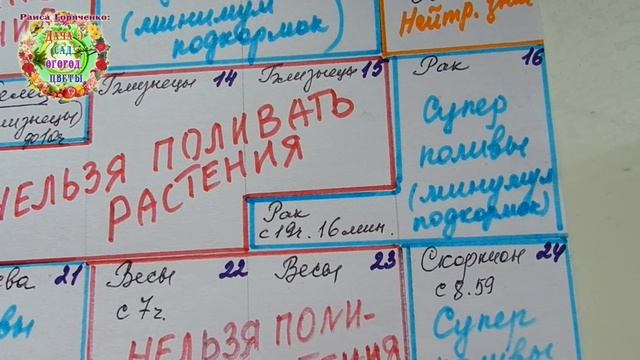 Раиса Горяченко:
ДАЧА
САД
ОГОРОД
ЦВЕТЫ
(минимум
подкормок)
Нейтр. зна
Близнецы 14
Близнецы 15
Рак 16
до 10ч
НЕЛЬЗЯ ПОЛИВАТЬ
РАСТЕНИЯ
Рак
с 19ч. 16мин.
Супер
поливы
(минимум
подкормок)
ва 21
вы
Весы 22
с 7ч.
Весы 23
НЕЛЬЗЯ ПОЛИ-
Скорпион 24
с 8.59
Супер